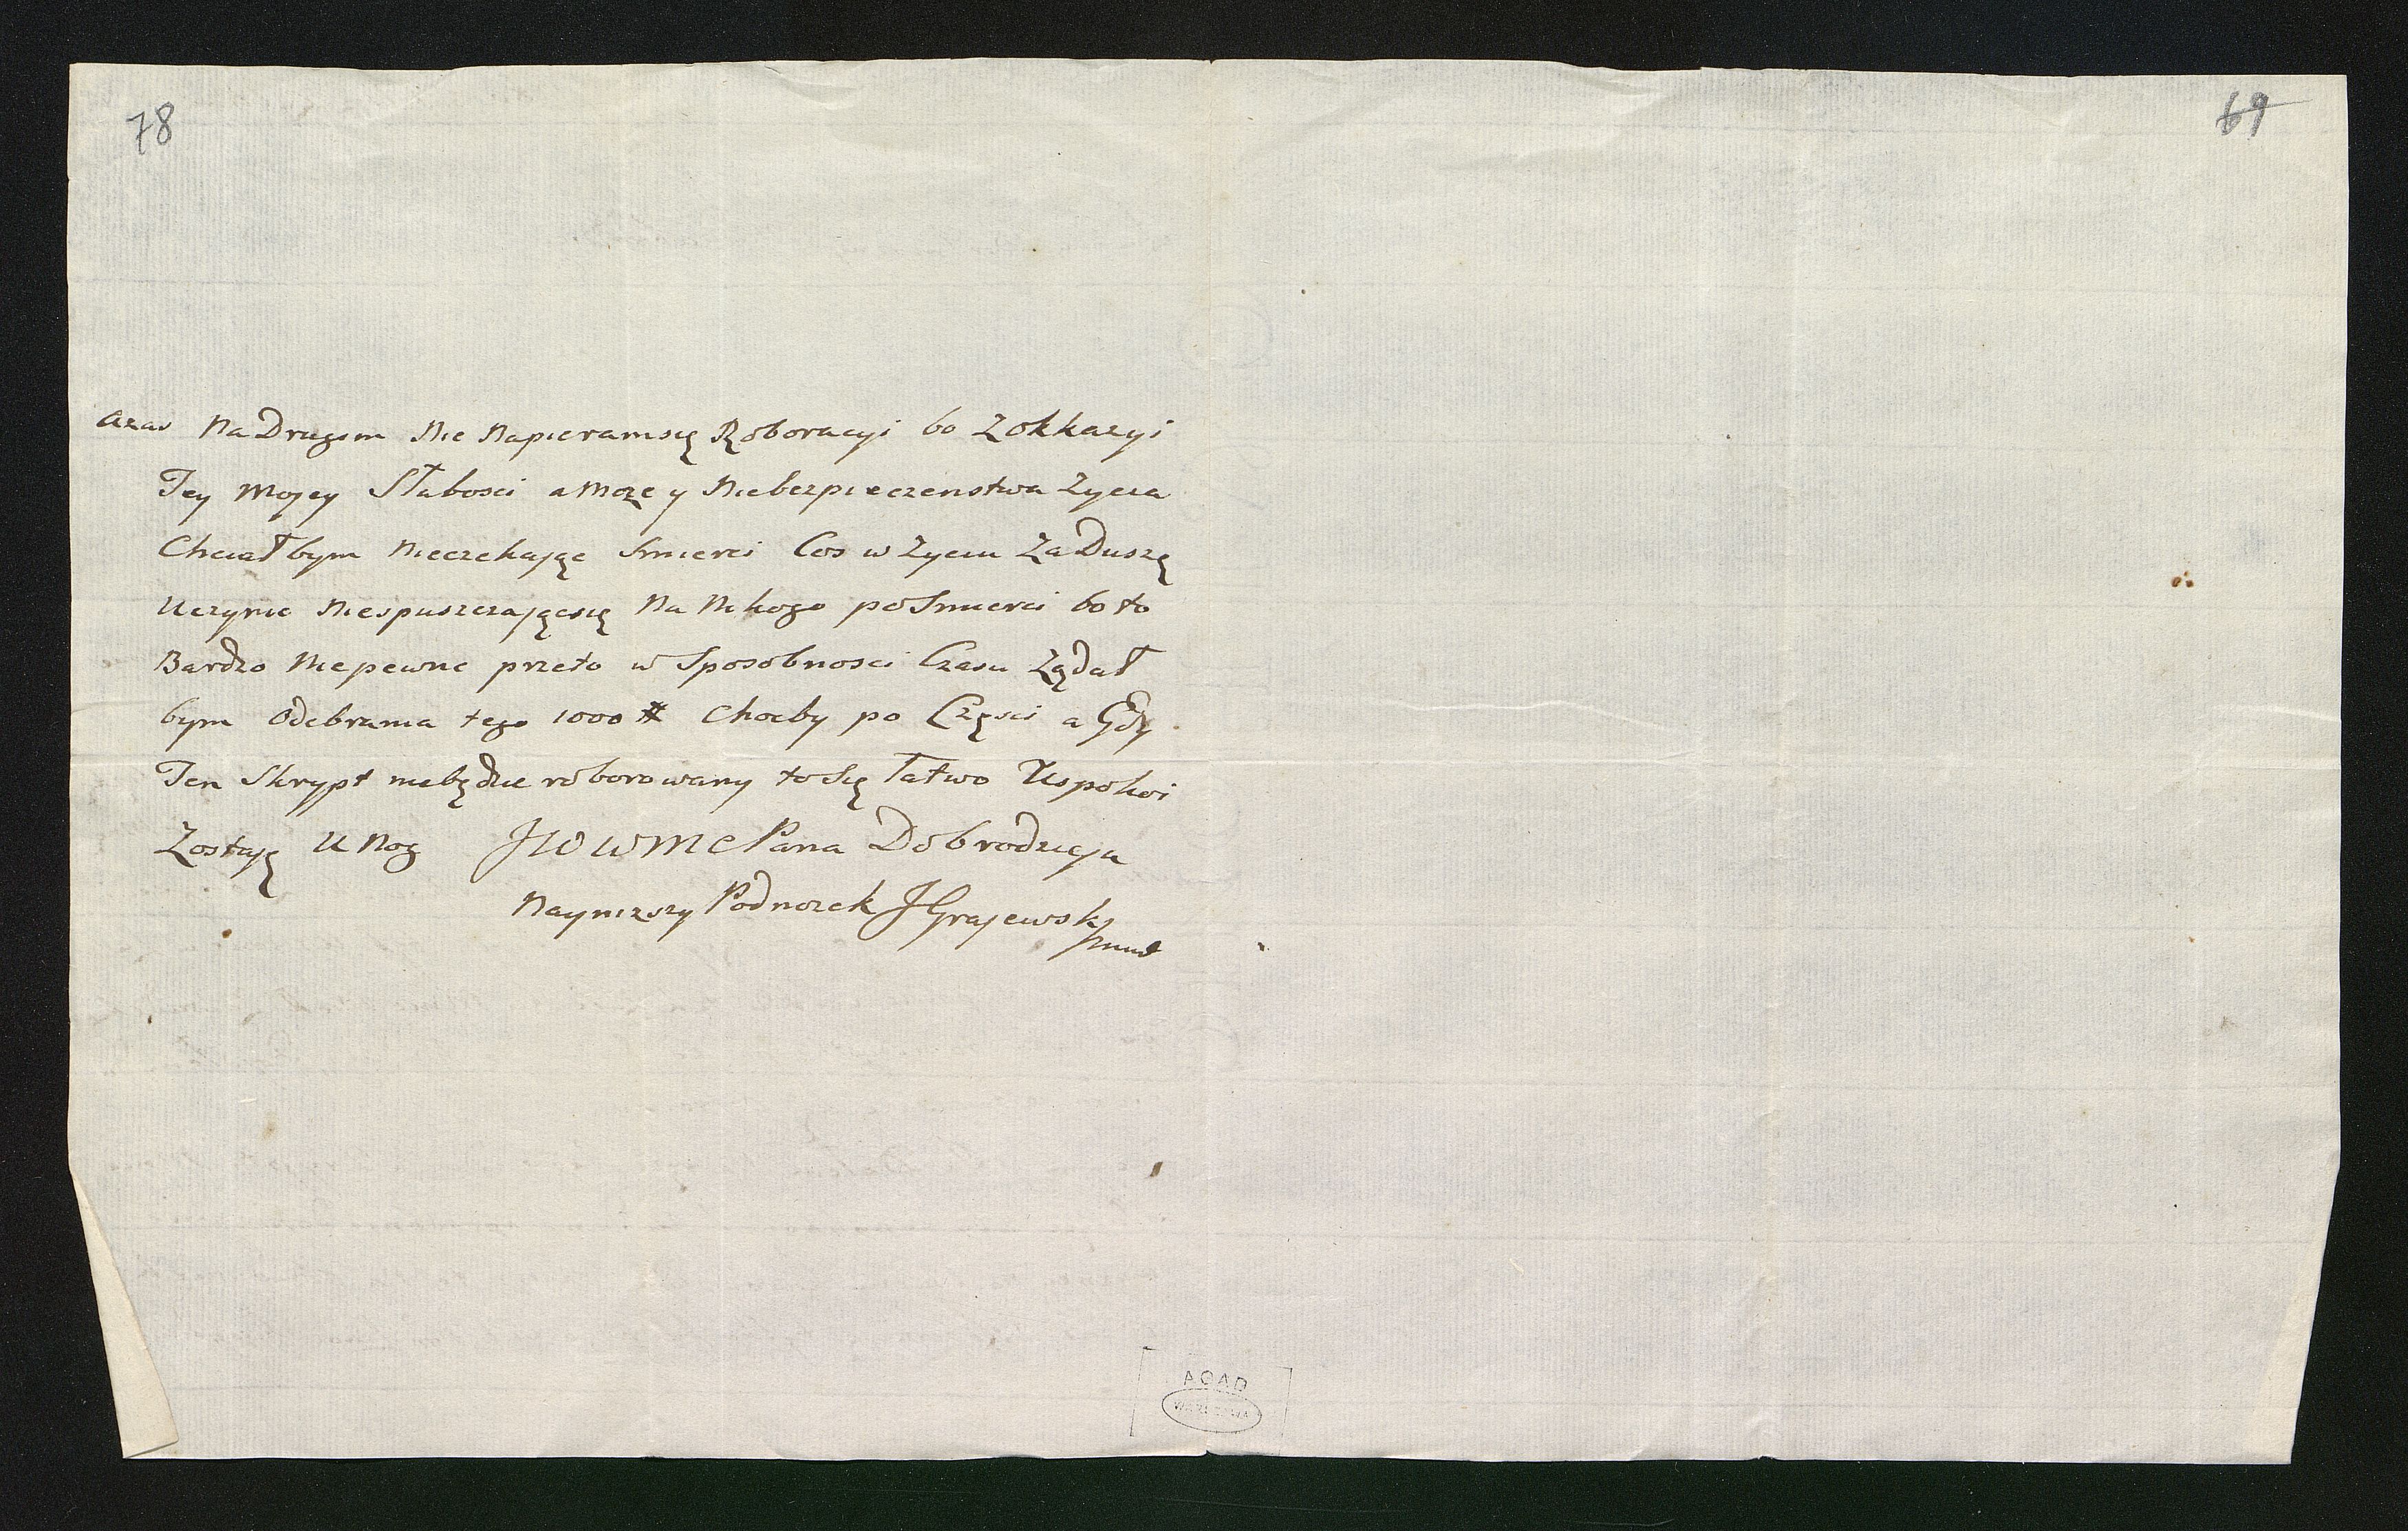 78
69
aras Na Drugim Nie Napieram się Roboracyi bo Zokkazyi
Tey Mojey Słabosci a Moze y Niebezpieczenstwa Zycia
Chciałbym Nieczekając Smierci Cos w Zyciu Za Duszę
Uczynic Niespuszczającsię Na Nikogo po Smierci bo to
Bardzo Niepewne przeto w Sposobnosci Czasu Ządał
bym Odebrania tego 1000 # Chocby po Częsci a Gdy
Ten Skrypt niebędzie roborowany to Się łatwo Uspokoi
Zostaję U Nog JWWMCPana Dobrodzieja
Naynizszy Podnozek JGrajewski
AGAD
WARSZAWA